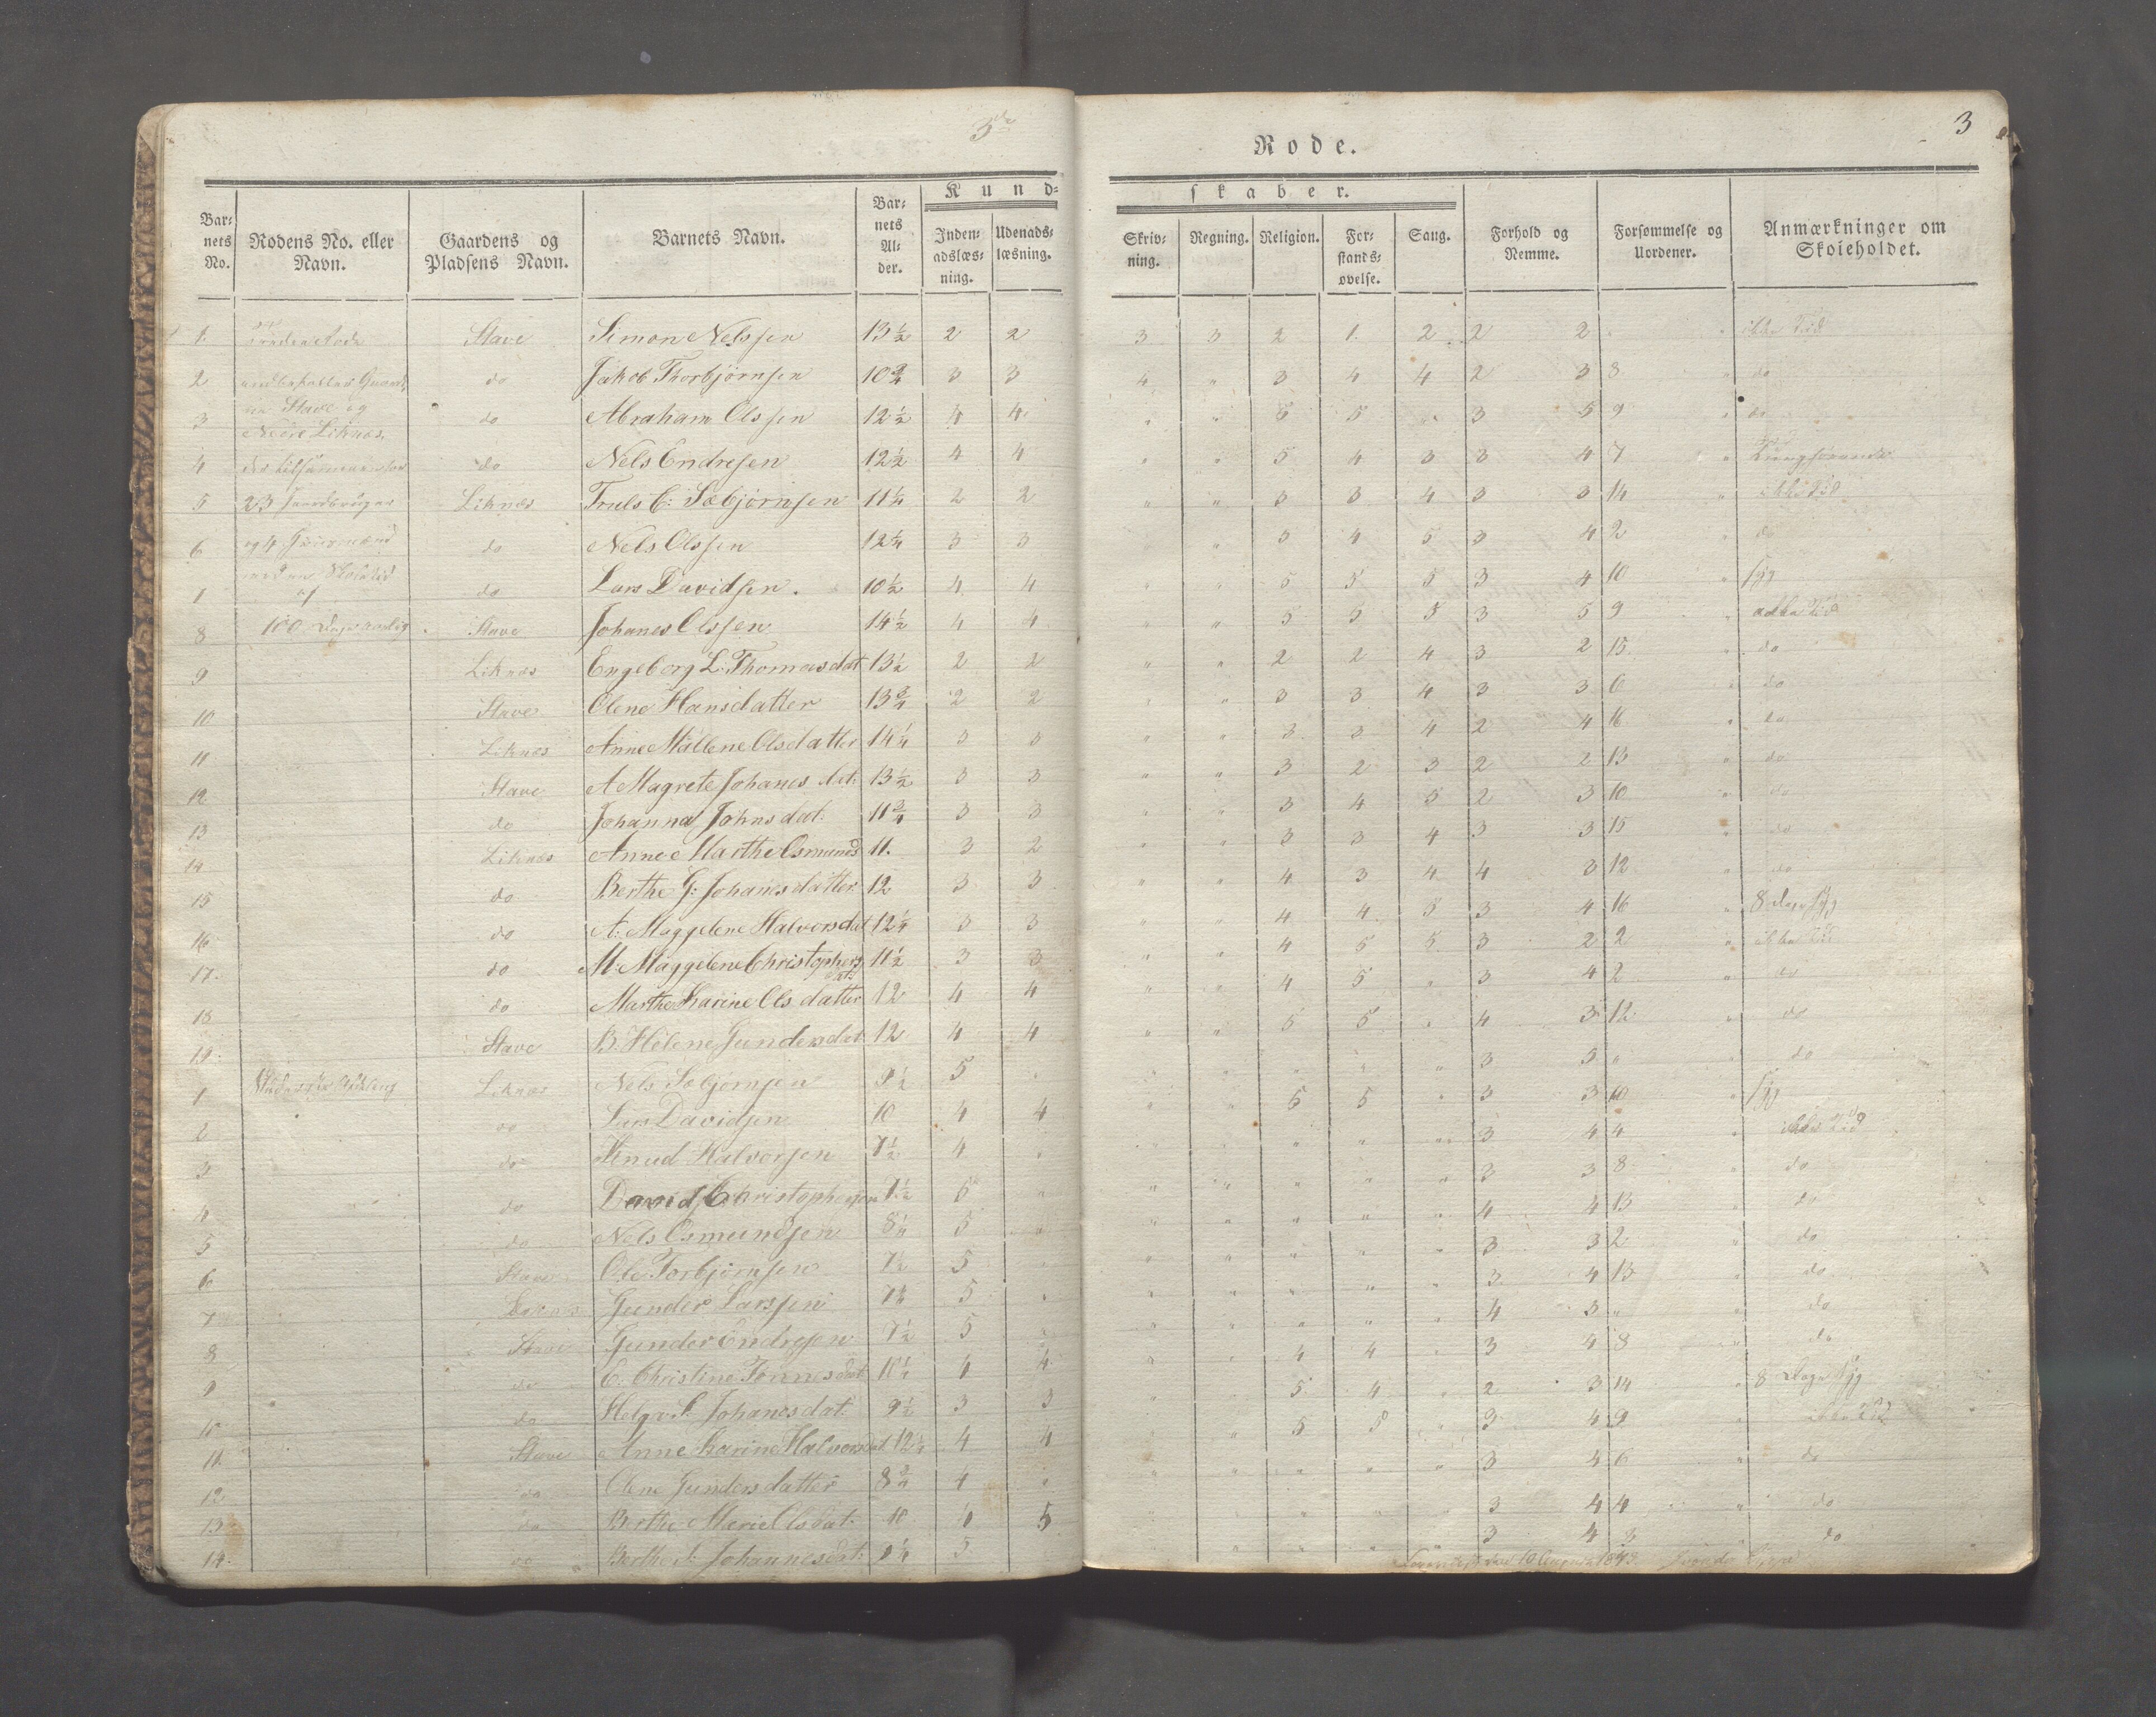 3de
Rode.
3
Barnets No. Rodens No. eller Navn. Gaardens og Pladsens Navn. Barnets Navn. Barnets Alder. Kundskaber. Forhold og Nemme. Forsømmelse og Uordener. Anmærkninger om Skoleholdet.
Indenadslæsning. Udenadslæsning. Skrivning. Regning. Religion. Forstandsøvelse. Sang.
1. Stave Simon Nelssen 13½ 2 2 3 3 2 1. 2 2 2 " ikke Tid
2 do Jakob Thorbjørnsen 10¾ 3 3 4 " 3 4 4 2 3 8 " do
3 Stave og do Abraham Olssen 12½ 4 4 " " 5 5 " 3 5 9 " do
Nedre Liknes.
4 do Nels Endresen 12½ 4 4 " " 5 4 3 3 4 7 "
5 23 Liknes Truls C: Sæbjørnsen 11¼ 2 2 " " 3 3 4 3 3 14 " ikke Tid
6 og 4 do Nels Olssen 12¼ 3 3 " " 3 4 5 3 4 2 " do
7 do Lars Davidsen. 10½ 4 4 " " 5 5 5 3 4 10 " syg
8 100 Dage aarlig Stave Johanes Olssen 14½ 4 4 " " 5 5 5 3 5 9 " Tid
9 Liknes Engeborg L: Thomasdat 13½ 2 2 " " 2 2 4 3 2 15 " do
10 Stave Olene Hansdatter 13¾ 2 2 " " 3 3 4 3 3 6 " do
11 Liknes Anne Mallene Olsdatter 14¼ 3 3 " " 3 3 4 2 4 16 " do
12 Stave A Magrete Johanes dat: 13½ 3 3 " " 3 2 3 2 2 13 " do
13 do Johanna Johns dat: 11¾ 3 3 " " 3 4 5 2 3 10 " do
14 Liknes Anne Marthe Osmunds 11. 3 2 " " 3 3 4 3 3 15 " do
15 do Berthe G: Johanesdatter 12 3 3 " " 4 3 4 4 3 12 " do
16 do A: Maggelene Halvorsdat 12¼ 3 3 " " 4 4 5 3 4 16 " 8 Dage syg
17. do M: Maggelene Christophers dat: 11½ 3 3 " " 4 5 5 3 2 2 " ikke Tid
18 do Marthe Karine Olsdatter 12 4 4 " " 4 5 " 3 4 2 " do
19. Stave B. Helene Gundersdat 12 4 4 " " 5 5 " 4 3 12 " do
1 Liknes Nels Sæbjørnsen 9½ 5 " " " " " " 3 3 " " do
2 do Lars Davidsen 10 4 4 " " 5 5 " 3 3 10 " syg
3 do Knud Halvorsen 7½ 4 " " " " " " 3 4 4 " ikke Tid
4 do David Christophersen 7½ 5 " " " " " " 3 3 8 " do
5 do Nels Osmundsen 8¼ 5 " " " " " " 4 4 13 " do
6 Stave Ole Torbjørnsen 7½ 5 " " " " " " 3 3 2 " do
7 Liknes Gunder Larssen 5 " " " " " " 3 4 13 " do
8 Stave Gunder Endresen 7½ 5 " " " " " " 4 3 " " do
9 do C. Christine Tønnesdat 10¼ 4 4 " " 4 4 " 3 4 8 " do
10 do Helge S: Johanesdat: 9½ 3 3 " " 5 4 " 2 3 14 " 8 Dage syg
11. Stave Anne Karine Halvorsdat 12¼ 4 4 " " 5 5 " 3 4 9 " ikke Tid
12 do Olene Gundersdatter 8¾ 4 " " " " " " 3 4 6 " do
13 do Berthe Marie Olsdat: 10 4 5 " " " " " 3 4 4 " do
14. do Berthe S: Johannesdat: 3 " " " " " 3 4 3 do